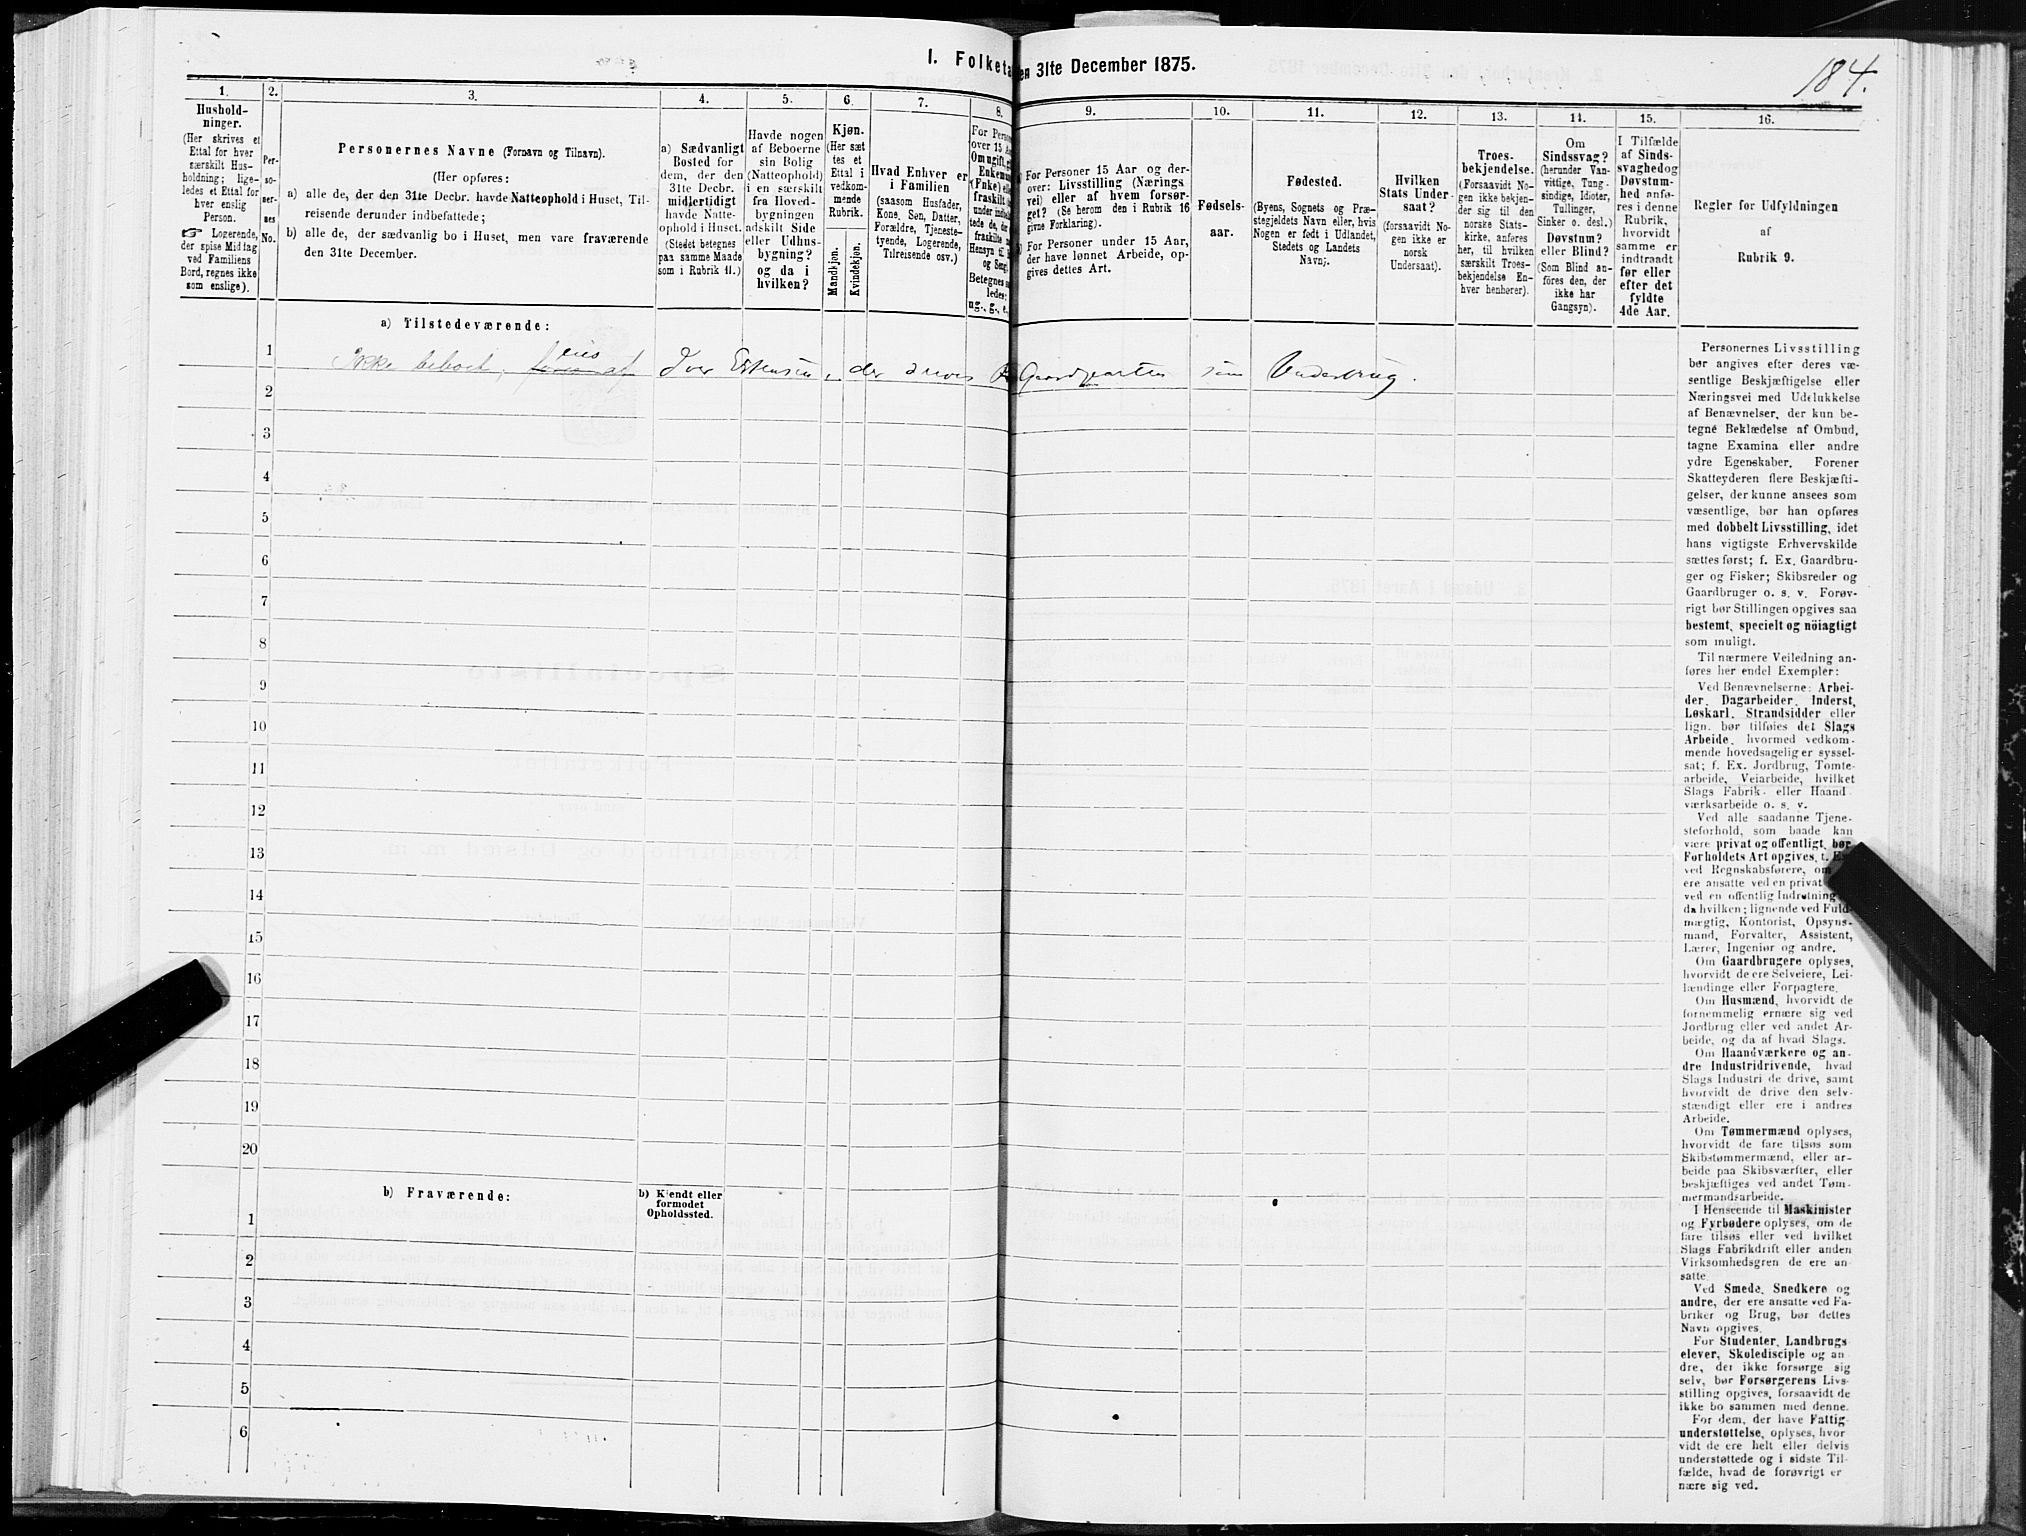 1. Folketa en 31te December 1875.
184.
1. 2. 3. 4. 5. 6. 7. 8. 9. 10. 11. 12. 13. 14. 15. 16.
Hushold-
ninger.
(Her skrives et
Ettal for hver
særskilt Hus-
holdning; lige-
ledes et Ettal for
hver enslig
Person.
☞ Logerende,
der spise Middag
ved Familiens
Bord, regnes ikke
som enslige).
Per-
so-
ner-
nes
No.
Personernes Navne (Fornavn og Tilnavn).
(Her opføres:
a) alle de, der den 31te Decbr. havde Natteophold i Huset, Til-
reisende derunder indbefattede;
b) alle de, der sædvanlig bo i Huset, men vare fraværende
den 31te December.
a) Sædvanligt
Bosted for
dem, der den
31te Decbr.
midlertidigt
havde Natte-
ophold i Huset.
(Stedet betegnes
paa samme Maade
som i Rubrik 11.)
Havde nogen
af Beboerne
sin Bolig
(Natteophold)
i en særskilt
fra Hoved-
bygningen
adskilt Side
eller Udhus-
bygning?
og da i
hvilken?
Kjøn.
(Her sæt
tes et
Ettal i
vedkom-
mende
Rubrik.
Mandkjøn.
Kvindekjøn.
Hvad Enhver er
i Familien
(saasom Husfader,
Kone, Søn, Datter,
Forældre, Tjeneste-
tyende, Logerende,
Tilreisende osv.)
For Person
over 15 Aa
Om ugift, g
Enkemm
(Enke) el
fraskilt (
under indbe
tede de, de
fraskilte m
Hensyn til
og Seng
Betegnes s
ledes:
ug., g., e.,
For Personer 15 Aar og der-
over: Livsstilling (Nærings
vei) eller af hvem forsør-
get? (Se herom den i Rubrik 16
givne Forklaring).
For Personer under 15 Aar,
der have lønnet Arbeide, op-
gives dettes Art.
Fødsels-
aar.
Fødested.
(Byens, Sognets og Præ-
stegjeldets Navn eller, hvis
Nogen er født i Udlandet,
Stedets og Landets
Navn).
Hvilken
Stats Under-
saat?
(forsaavidt No-
gen ikke er
norsk
Undersaat).
Troes-
bekjendelse.
(Forsaavidt No-
gen ikke bekjen-
der sig til den
norske Stats-
kirke, anføres
her, til hvilken
særskilt Troes-
bekjendelse En-
hver henhører).
Om
Sindssvag?
(herunder Van-
vittige, Tung-
sindige, Idioter,
Tullinger,
Sinker o. desl.)
Døvstum?
eller Blind?
(Som Blind an-
føres den, der
ikke har
Gangsyn).
I Tilfælde
af Sinds-
svaghedog
Døvstum-
hed anfø-
res i denne
Rubrik,
hvorvidt
samme er
indtraadt
før eller
efter det
fyldte
4de Aar.
Regler for Udfyldningen
af
Rubrik 9.
a) Tilstedeværende:
1 Ikke beboet, eies af Iver Estensen, der drives Gaardparten som Underbrug.
2
3
4
5
6
7
8
9
10
11
12
13
14
15
16
17
18
19
20
b) Fraværende:
b) Kjendt eller
formodet
Opholdssted.
1
2
3
4
5
6
Personernes Livsstilling
bør angives efter deres væ-
sentlige Beskjæftigelse eller
Næringsvei med Udelukkelse
af Benævnelser, der kun be-
tegne Beklædelse af Ombud,
tagne Examina eller andre
ydre Egenskaber. Forener
Skatteyderen flere Beskjæfti-
gelser, der kunne ansees som
væsentlige, bør han opføres
med dobbelt Livsstilling, idet
hans vigtigste Erhvervskilde
sættes først; f. Ex. Gaardbru-
ger og Fisker; Skibsreder og
Gaardbruger o. s. v. Forøv-
rigt bør Stillingen opgives saa
bestemt, specielt og nöiagtigt
som muligt.
Til nærmere Veiledning an-
føres her endel Exempler:
Ved Benævnelserne: Arbei-
der, Dagarbeider, Inderst,
Løskarl, Strandsidder eller
lign. bør tilføies det Slags
Arbeide, hvormed vedkom-
mende hovedsagelig er syssel-
sat; f. Ex. Jordbrug, Tomte-
arbeide, Veiarbeide, hvilket
Slags Fabrik- eller Haand
værksarbeide o. s. v.
Ved alle saadanne Tjene-
steforhold, som baade kan
være privat og offentligt, bør
Forholdets Art opgives, f. Ex
ved Regnskabsførere, om
ere ansatte ved en privat
ved en offentlig Indretning
da hvilken; lignende ved Fuld-
mægtig, Kontorist, Opsyns-
mand, Forvalter, Assistent,
Lærer, Ingeniør og andre.
Om Gaardbrugere oplyses,
hvorvidt de ere Selveiere, Lei-
lændinge eller Forpagtere.
Om Husmænd, hvorvidt de
fornemmelig ernære sig ved
Jordbrug eller ved andet Ar-
beide, og da af hvad Slags.
Om Haandværkere og an-
dre Industridrivende, hvad
Slags Industri de drive, samt
hvorvidt de drive den selv-
stændigt eller ere i andres
Arbeide.
Om Tømmermænd oplyses,
hvorvidt de fare tilsøs som
Skibstømmermænd, eller ar-
beide paa Skibsværfter, eller
beskjæftiges ved andet Tøm-
mermandsarbeide.
I Henseende til Maskinister
og Fyrbødere oplyses, om de
fare tilsøs eller ved hvilket
Slags Fabrikdrift eller anden
Virksomhedsgren de ere an-
satte.
Ved Smede, Snedkere og
andre, der ere ansatte ved Fa-
briker og Brug, bør dettes
Navn opgives.
For Studenter, Landbrugs
elever, Skoledisciple og an
dre, der ikke forsørge sig
selv, bør Forsørgerens Livs-
stilling opgives, forsaavidt de
ikke bo sammen med denne.
For dem, der have Fattig-
understøttelse, oplyses, hvor
vidt de ere helt eller delvis
understøttede og i sidste Til-
fælde, hvad de forøvrigt er
nære sig ved.